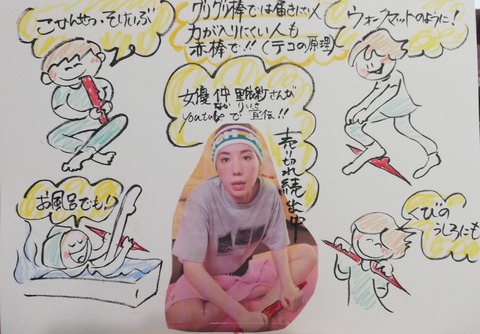 グリグリ棒では届きにくい人
力が入りにくい人も
赤棒で!!(テコの原理)
ウォークマットのように!
女優 仲里依紗さんが
なか りいさ
youtubeで宣伝!!
売り切れ続出中
お風呂でも!
くびの
うしろにも